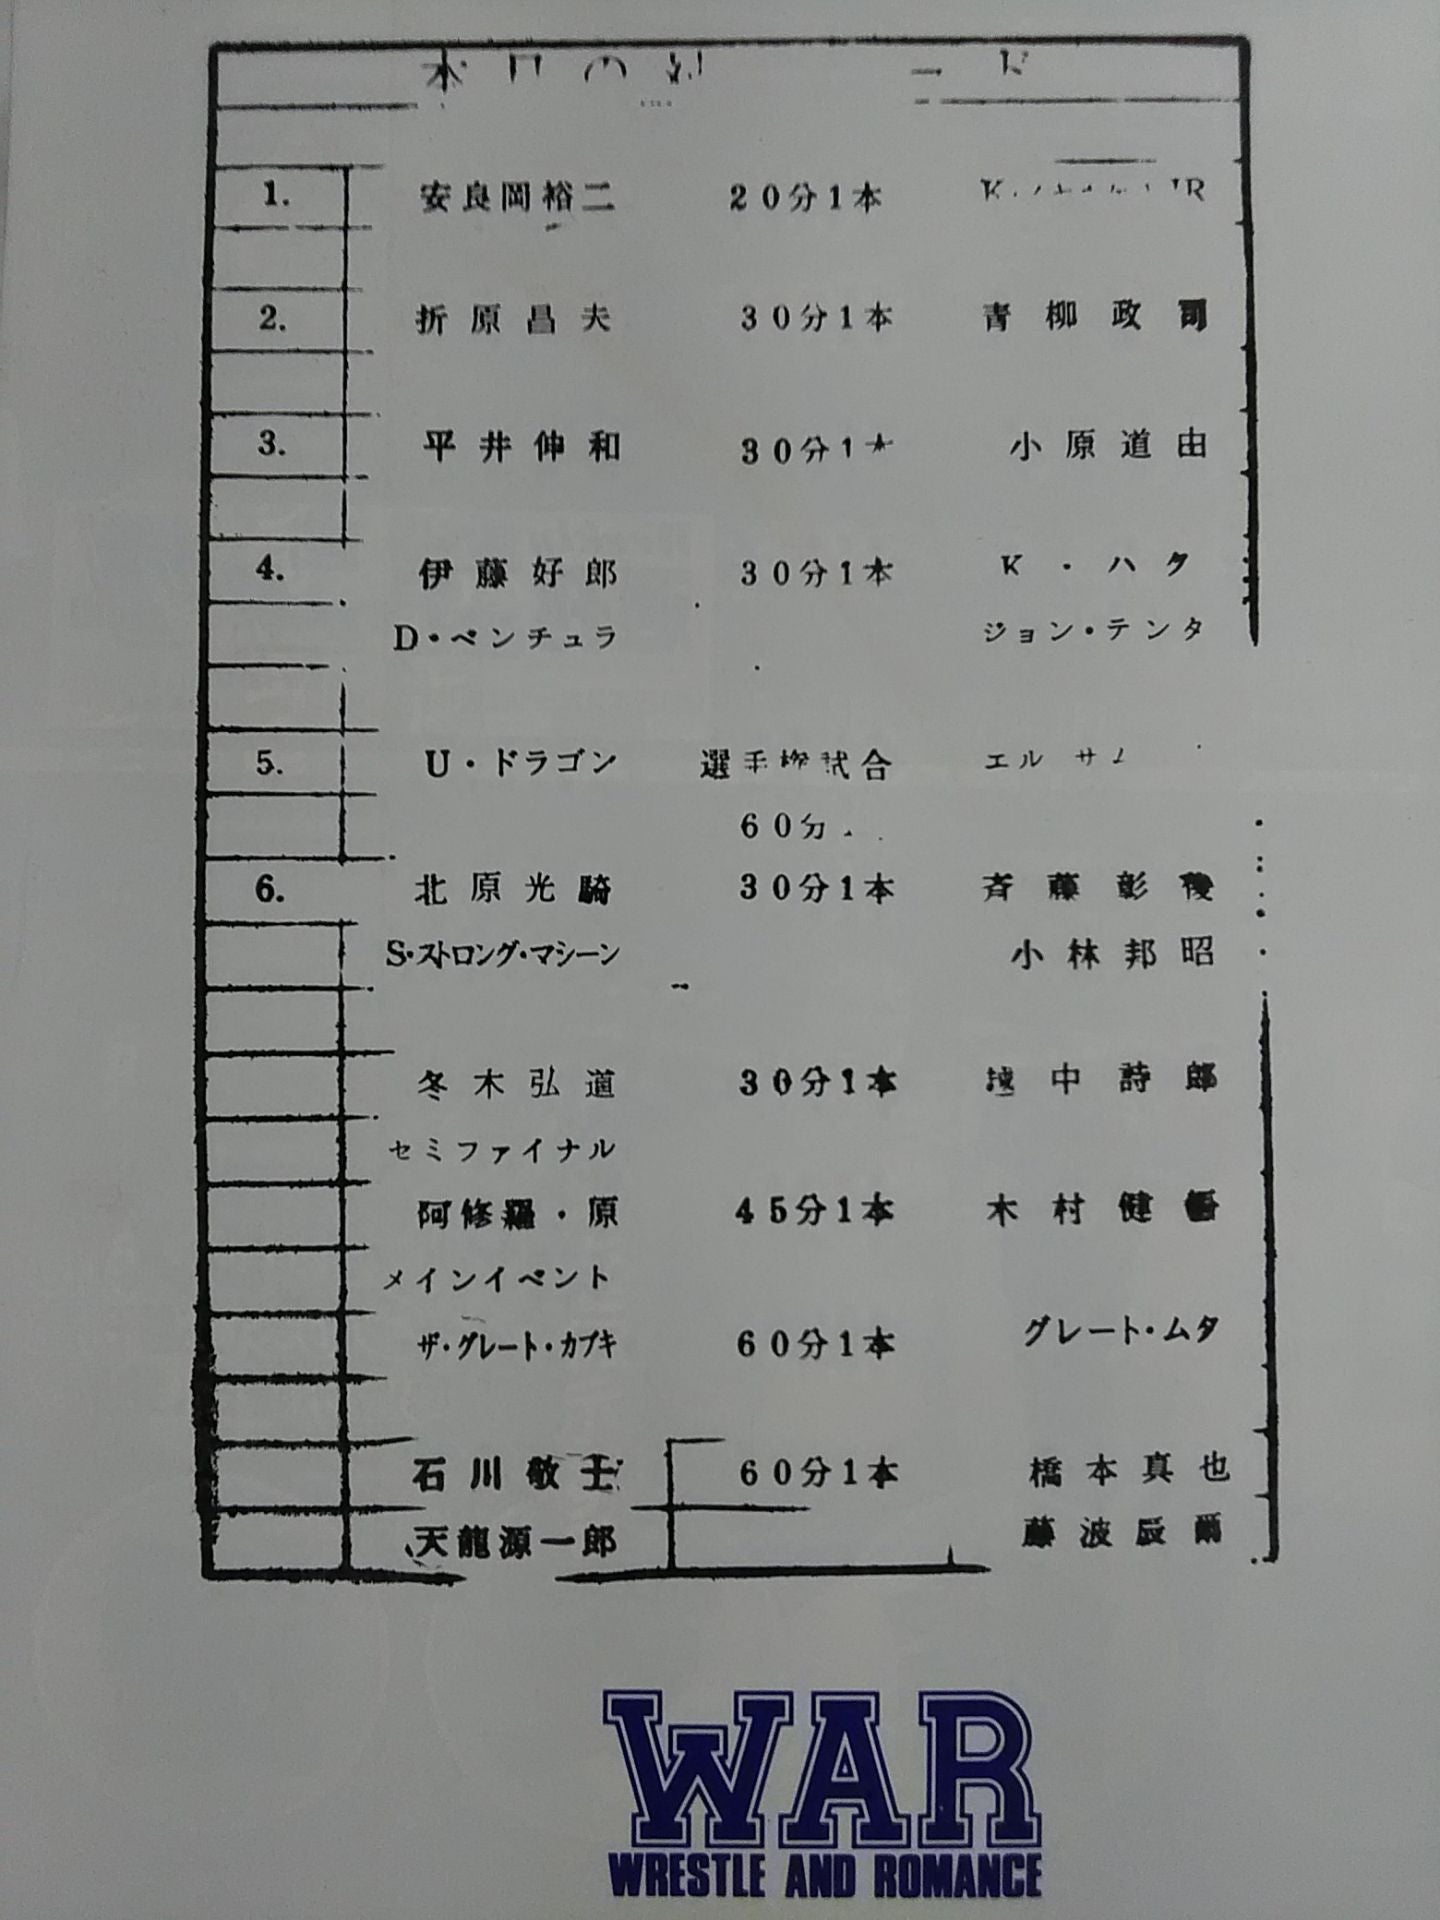 1. 安良岡裕二 20分1本
2. 折原昌夫 30分1本 青柳政司
3. 平井伸和 30分1本 小原道由
4. 伊藤好郎 30分1本 K・ハタ
D・ベンチュラ ジョン・テンタ
5. U・ドラゴン 選手権試合 エル サム
60分
6. 北原光騎 30分1本 斉藤彰俊
S・ストロング・マシーン 小林邦昭
冬木弘道 30分1本 越中詩郎
セミファイナル
阿修羅・原 45分1本 木村健悟
メインイベント
ザ・グレート・カブキ 60分1本 グレート・ムタ
石川敬士 60分1本 橋本真也
天龍源一郎 藤波辰爾
WAR
WRESTLE AND ROMANCE